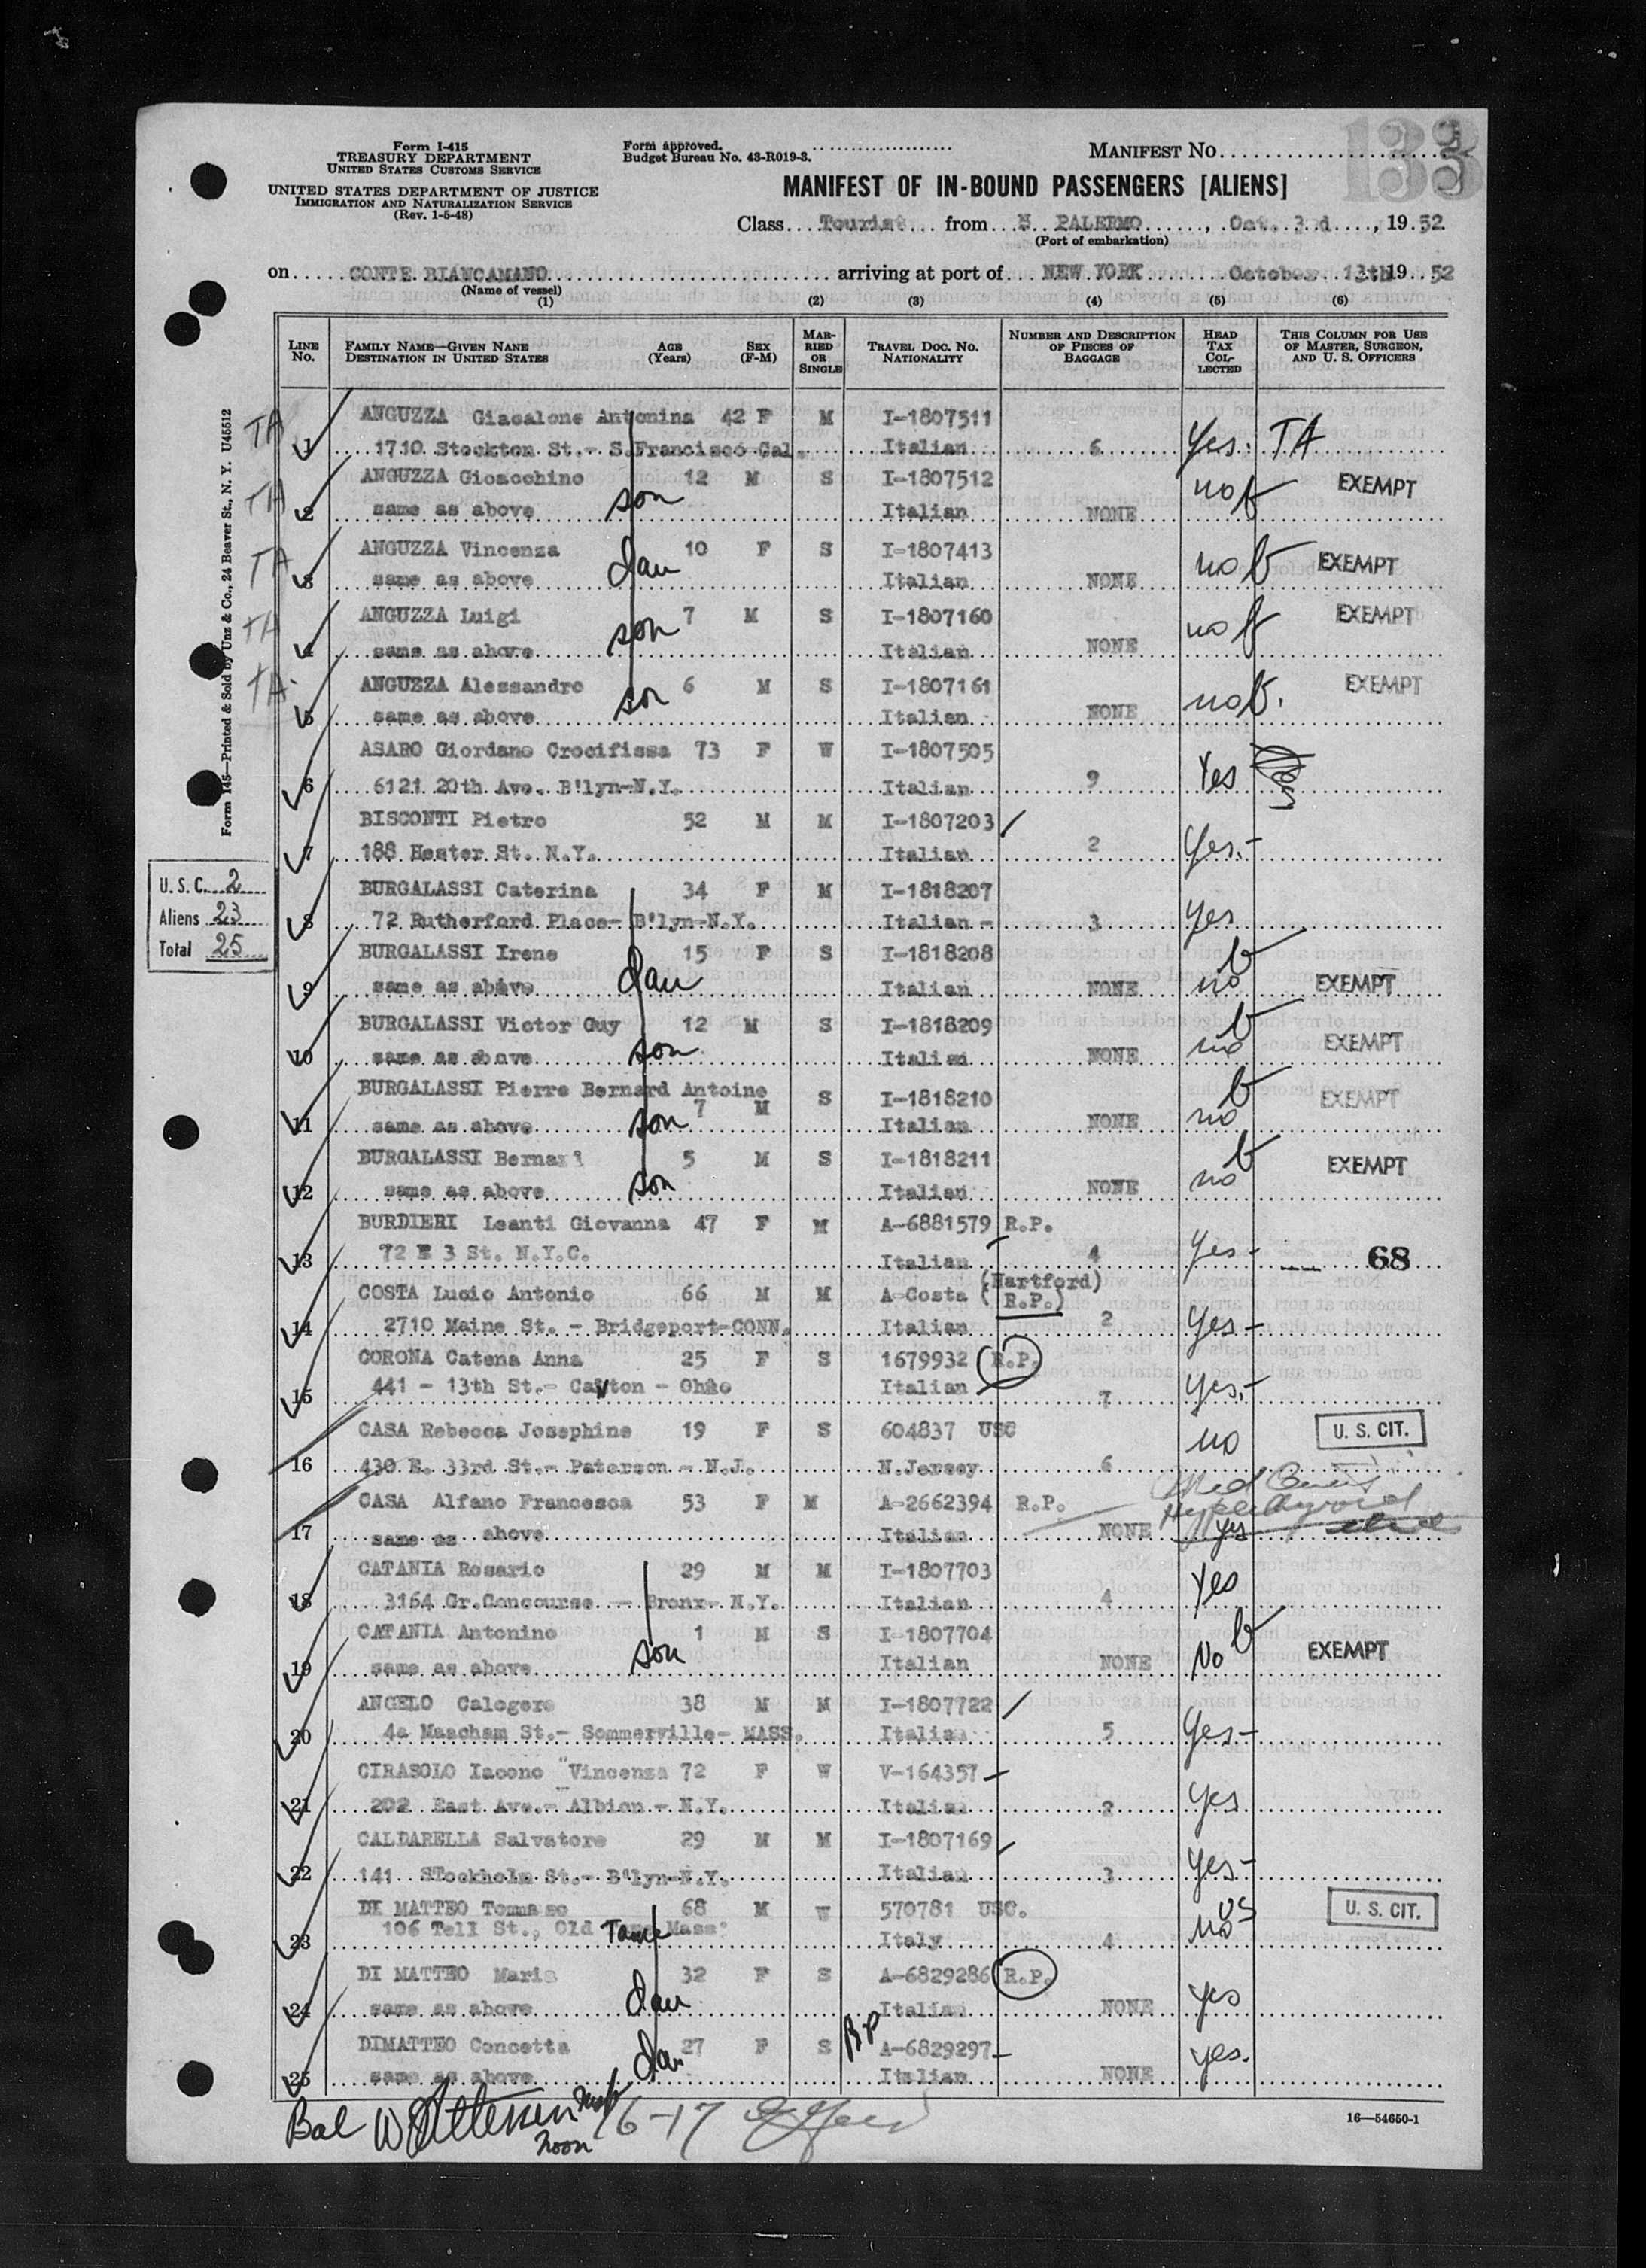 133
Form I-415
TREASURY DEPARTMENT
UNITED STATES CUSTOMS SERVICE
UNITED STATES DEPARTMENT OF JUSTICE
IMMIGRATION AND NATURALIZATION SERVICE
(Rev. 1-5-48)
Form approved.
Budget Bureau No. 43-R019-3.
MANIFEST NO.
MANIFEST OF IN-BOUND PASSENGERS [ALIENS]
Class Tourist from PALERMO, Oct. 3d, 1952
(Port of embarkation)
on CONTE BIANCAMANO arriving at port of NEW YORK October 13th 1952
(Name of vessel)
(1) (2) (3) (4) (5) (6)
LINE NO. FAMILY NAME—GIVEN NAME DESTINATION IN UNITED STATES AGE (Years) SEX (F-M) MARRIED OR SINGLE TRAVEL DOC. NO. NATIONALITY NUMBER AND DESCRIPTION OF PIECES OF BAGGAGE HEAD TAX COLLECTED THIS COLUMN FOR USE OF MASTER, SURGEON, AND U. S. OFFICERS
TA ANGUZZA Giacalone Antonina 42 F M I-1807511
1 1710 Stockton St.- S.Francisco Cal. Italian 6 Yes. TA
TA ANGUZZA Gioacchino 12 M S I-1807512 EXEMPT
2 same as above son Italian NONE no
TA ANGUZZA Vincenza 10 F S I-1807413 EXEMPT
3 same as above dau Italian NONE no
TA ANGUZZA Luigi 7 M S I-1807160 EXEMPT
4 same as above son Italian NONE no
TA ANGUZZA Alessandro 6 M S I-1807161 EXEMPT
5 same as above son Italian NONE no
ASARO Giordano Crocifissa 73 F W I-1807505
6 6121 20th Ave. B'lyn-N.Y. Italian 9 Yes
BISCONTI Pietro 52 M M I-1807203
7 188 Hester St. N.Y. Italian 2 Yes.-
BURGALASSI Caterina 34 F M I-1818207
8 72 Rutherford Place- B'lyn-N.Y. Italian - 3 Yes
BURGALASSI Irene 15 F S I-1818208
9 same as above dau Italian NONE no EXEMPT
BURGALASSI Victor Guy 12 M S I-1818209
10 same as above son Italian NONE no EXEMPT
BURGALASSI Pierre Bernard Antoine 7 M S I-1818210
11 same as above son Italian NONE no EXEMPT
BURGALASSI Bernard 5 M S I-1818211
12 same as above son Italian NONE no EXEMPT
BURDIERI Leanti Giovanna 47 F M A-6881579 R.P.
13 72 E 3 St. N.Y.C. Italian 4 Yes- 68
COSTA Lucio Antonio 66 M M A-Costa (Hartford) (R.P.)
14 2710 Maine St. - Bridgeport-CONN. Italian 2 Yes-
CORONA Catena Anna 25 F S 1679932 R.P.
15 441 - 13th St.- Canton - Ohio Italian 7 Yes.-
CASA Rebecca Josephine 19 F S 604837 USC U. S. CIT.
16 430 E. 33rd St.- Paterson - N.J. N.Jersey 6 no
CASA Alfano Francesca 53 F M A-2662394 R.P.
17 same as above Italian NONE yes
CATANIA Rosario 29 M M I-1807703
18 3164 Gr.Concourse - Bronx- N.Y. Italian 4 Yes
CATANIA Antonino 1 M S I-1807704
19 same as above son Italian NONE No EXEMPT
ANGELO Calogero 38 M M I-1807722
20 4a Maacham St.- Sommerville- MASS. Italian 5 Yes.-
CIRASOLO Iacono Vincenza 72 F W V-164357
21 202 East Ave.- Albion - N.Y. Italian 2 Yes
CALDARELLA Salvatore 29 M M I-1807169
22 141 STockholm St.- B'lyn-N.Y. Italian 3 Yes-
DI MATTEO Tommaso 68 M W 570781 USC. US U. S. CIT.
23 106 Tell St., Old Mass. Italy 4 no
DI MATTEO Maria 32 F S A-6829286 R.P.
24 same as above dau Italian NONE Yes
DIMATTEO Concetta 27 F S RP A-6829297
25 same as above dau Italian NONE yes.
U.S.C. 2
Aliens 23
Total 25
Form 145—Printed & Sold by Unz & Co., 24 Beaver St., N. Y. U45512
Bal noon 16-17
16—54650-1